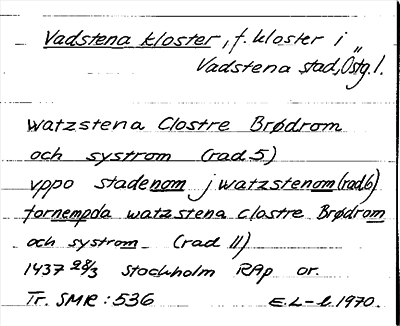 Vadstena kloster, f. kloster i
Vadstena stad, Östg. l.
watzstena Clostre Brødrom
och systrom (rad 5)
vppo stadenom j watzstenom (rad 6)
fornempda watzstena clostre Brødrom
och systrom (rad 11)
1437 28/3 Stockholm RAp or.
Tr. SMR: 536 E.L-l. 1970.